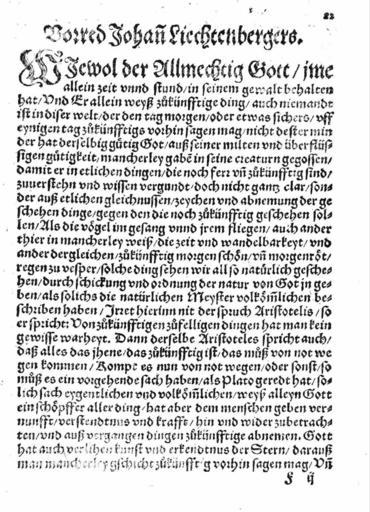 82
Vorred Johañ Liechtenbergers.
WJewol der Allmechtig Gott / jme
allein zeit vnnd stund / in seinem gewalt behalten
hat / Vnd Er allein weyß zůkünfftige ding / auch niemandt
ist in diser welt / der den tag morgen / oder etwas sichers / vff
eynigen tag zůkünfftigs vorhin sagen mag / nicht dester min
der hat derselbig gütig Got / auß seiner milten vnd überflüs-
sigen gütigkeit / mancherley gabē in seine creaturn gegossen /
damit er in etlichen dingen / die noch fern vñ zůkünfftig sind /
zuuerstehn vnd wissen vergundt / doch nicht gantz clar / son-
der auß etlichen gleichnussen / zeychen vnd abnemung der ge
schehen dinge / gegen den die noch zůkünfftig geschehen sol-
len / Als die vögel im gesang vnnd jrem fliegen / auch ander
thier in mancherley weiß / die zeit vnd wandelbarkeyt / vnd
ander dergleichen / zůkünfftig morgen schön / vñ morgenröt /
regen zu vesper / solche ding sehen wir all so natürlich gesche-
hen / durch schickung vnd ordnung der natur von Got jn ge-
ben / als solichs die natürlichen Meyster volkömlichen be-
schriben haben / Jrret hierinn nit der spruch Aristotelis / so
er spricht: Von zůkünfftigen zůfelligen dingen hat man kein
gewisse warheyt. Dann derselbe Aristoteles spricht auch /
daß alles das jhene / das zůkünfftig ist / das můß von not we
gen kommen / Kompt es nun von not wegen / oder sonst / so
můß es ein vorgehende sach haben / als Plato geredt hat / so-
lich sach eygentlichen vnd volkömlichen / weyß alleyn Gott
ein schöpffer aller ding / hat aber dem menschen geben ver-
nunfft / verstendtnus vnd krafft / hin vnd wider zubetrach-
ten / vnd auß vergangen dingen zůkünfftige abnemen. Gott
hat auch verlihen kunst vnd erkendtnus der Stern / darauß
man mancherley gschicht zůkünfftig vorhin sagen mag / Vñ
F ij